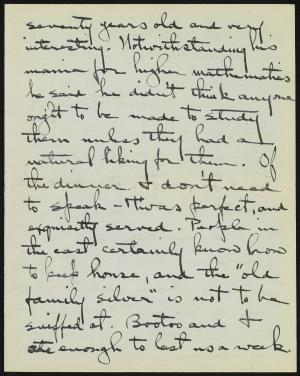 seventy years old and very
interesting. Notworthstanding his
mania for higher mathematics
he said he didn't think anyone
ought to be made to study
them unless they had a
natural liking for them. Of
the dinner I don't need
to speak - it was perfect, and
exquisitly served. People in
the east certainly know how
to keep house, and the "old
family silver" is not to be
sniffed at. Bootoo and I
ate enough to last us a week.